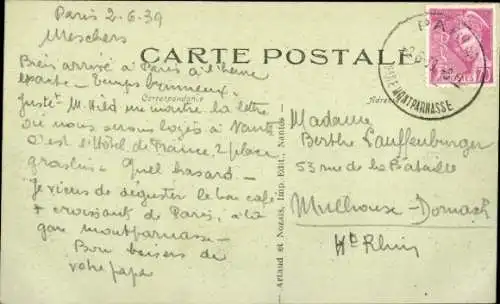 Paris 2-6-39
Meschers
CARTE POSTALE
Bien arrivé à Paris à l'heure
exacte - Temps brumeux -
Correspondance
Adresse
Juste M. Hild me montre la lettre
où nous serons logés à Nantes
C'est l'Hôtel de France, 2 place
graslin - Quel hasard -
Je viens de déguster le bon café
+ croissant de Paris, à la
gare montparnasse -
Bon baisers de
votre papa
Artaud et Nozais, Imp. Edit., Nantes
PARIS
GARE MONTPARNASSE
POSTES
70
Madame
Berthe Lauffenburger
53 rue de la Bataille
Mulhouse-Dornach
Ht Rhin